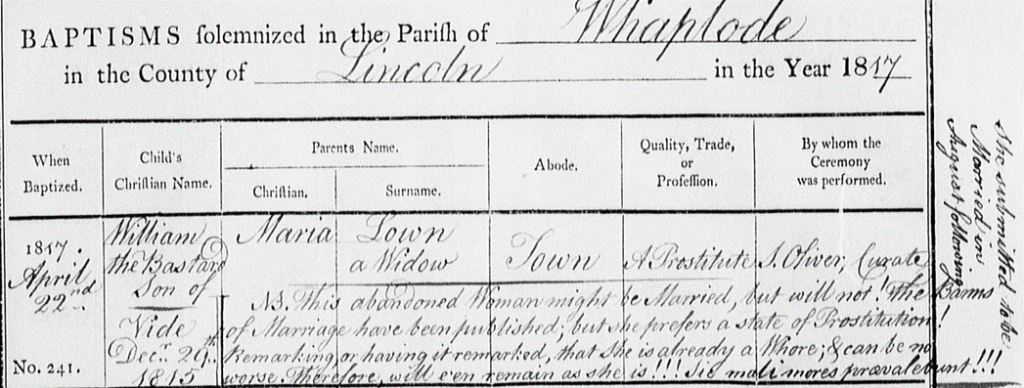 BAPTISMS ſolemnized in the Pariſh of Whaplode
in the County of Lincoln in the Year 1817
When Baptized.
Child's Chriſtian Name.
Parents Name.
Chriſtian.
Surname.
Abode.
Quality, Trade, or Profeſſion.
By whom the Ceremony was performed.
1817. April 22nd
William the Bastard Son of
Maria
Lown a Widow
Town
A Prostitute
S. Oliver, Curate
Vide Decr. 29th 1815
No. 241.
NB. This abandoned Woman might be Married, but will not! The Banns
of Marriage have been published; but she prefers a state of Prostitution!
Remarking or having it remarked, that She is already a Whore; & can be no
worse. Therefore, will e'en remain as she is!!! Sic mali mores prævalebunt!!!
She submitted to be
Married in
August following